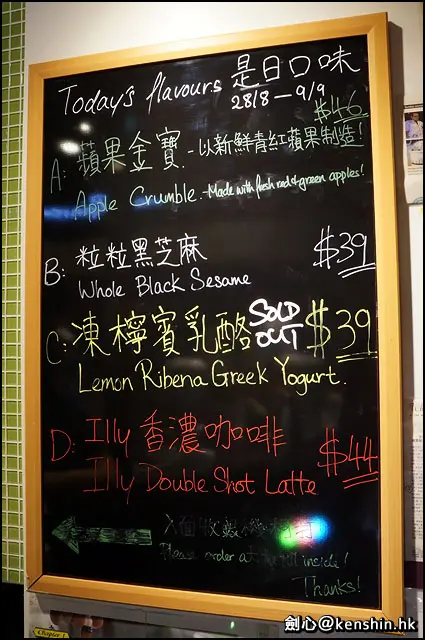 Today's flavours 是日口味
28/8 — 9/9
$46
A: 蘋果金寶 - 以新鮮青紅蘋果制造!
Apple Crumble. - Made with fresh red & green apples!
B: 粒粒黑芝麻 $39
Whole Black Sesame
C: 凍檸賓乳酪 SOLD OUT $39
Lemon Ribena Greek Yogurt.
D: Illy 香濃咖啡 $44
Illy Double Shot Latte
入面收銀
Please order at the till inside!
Thanks!
Chapter 1
劍心@kenshin.hk